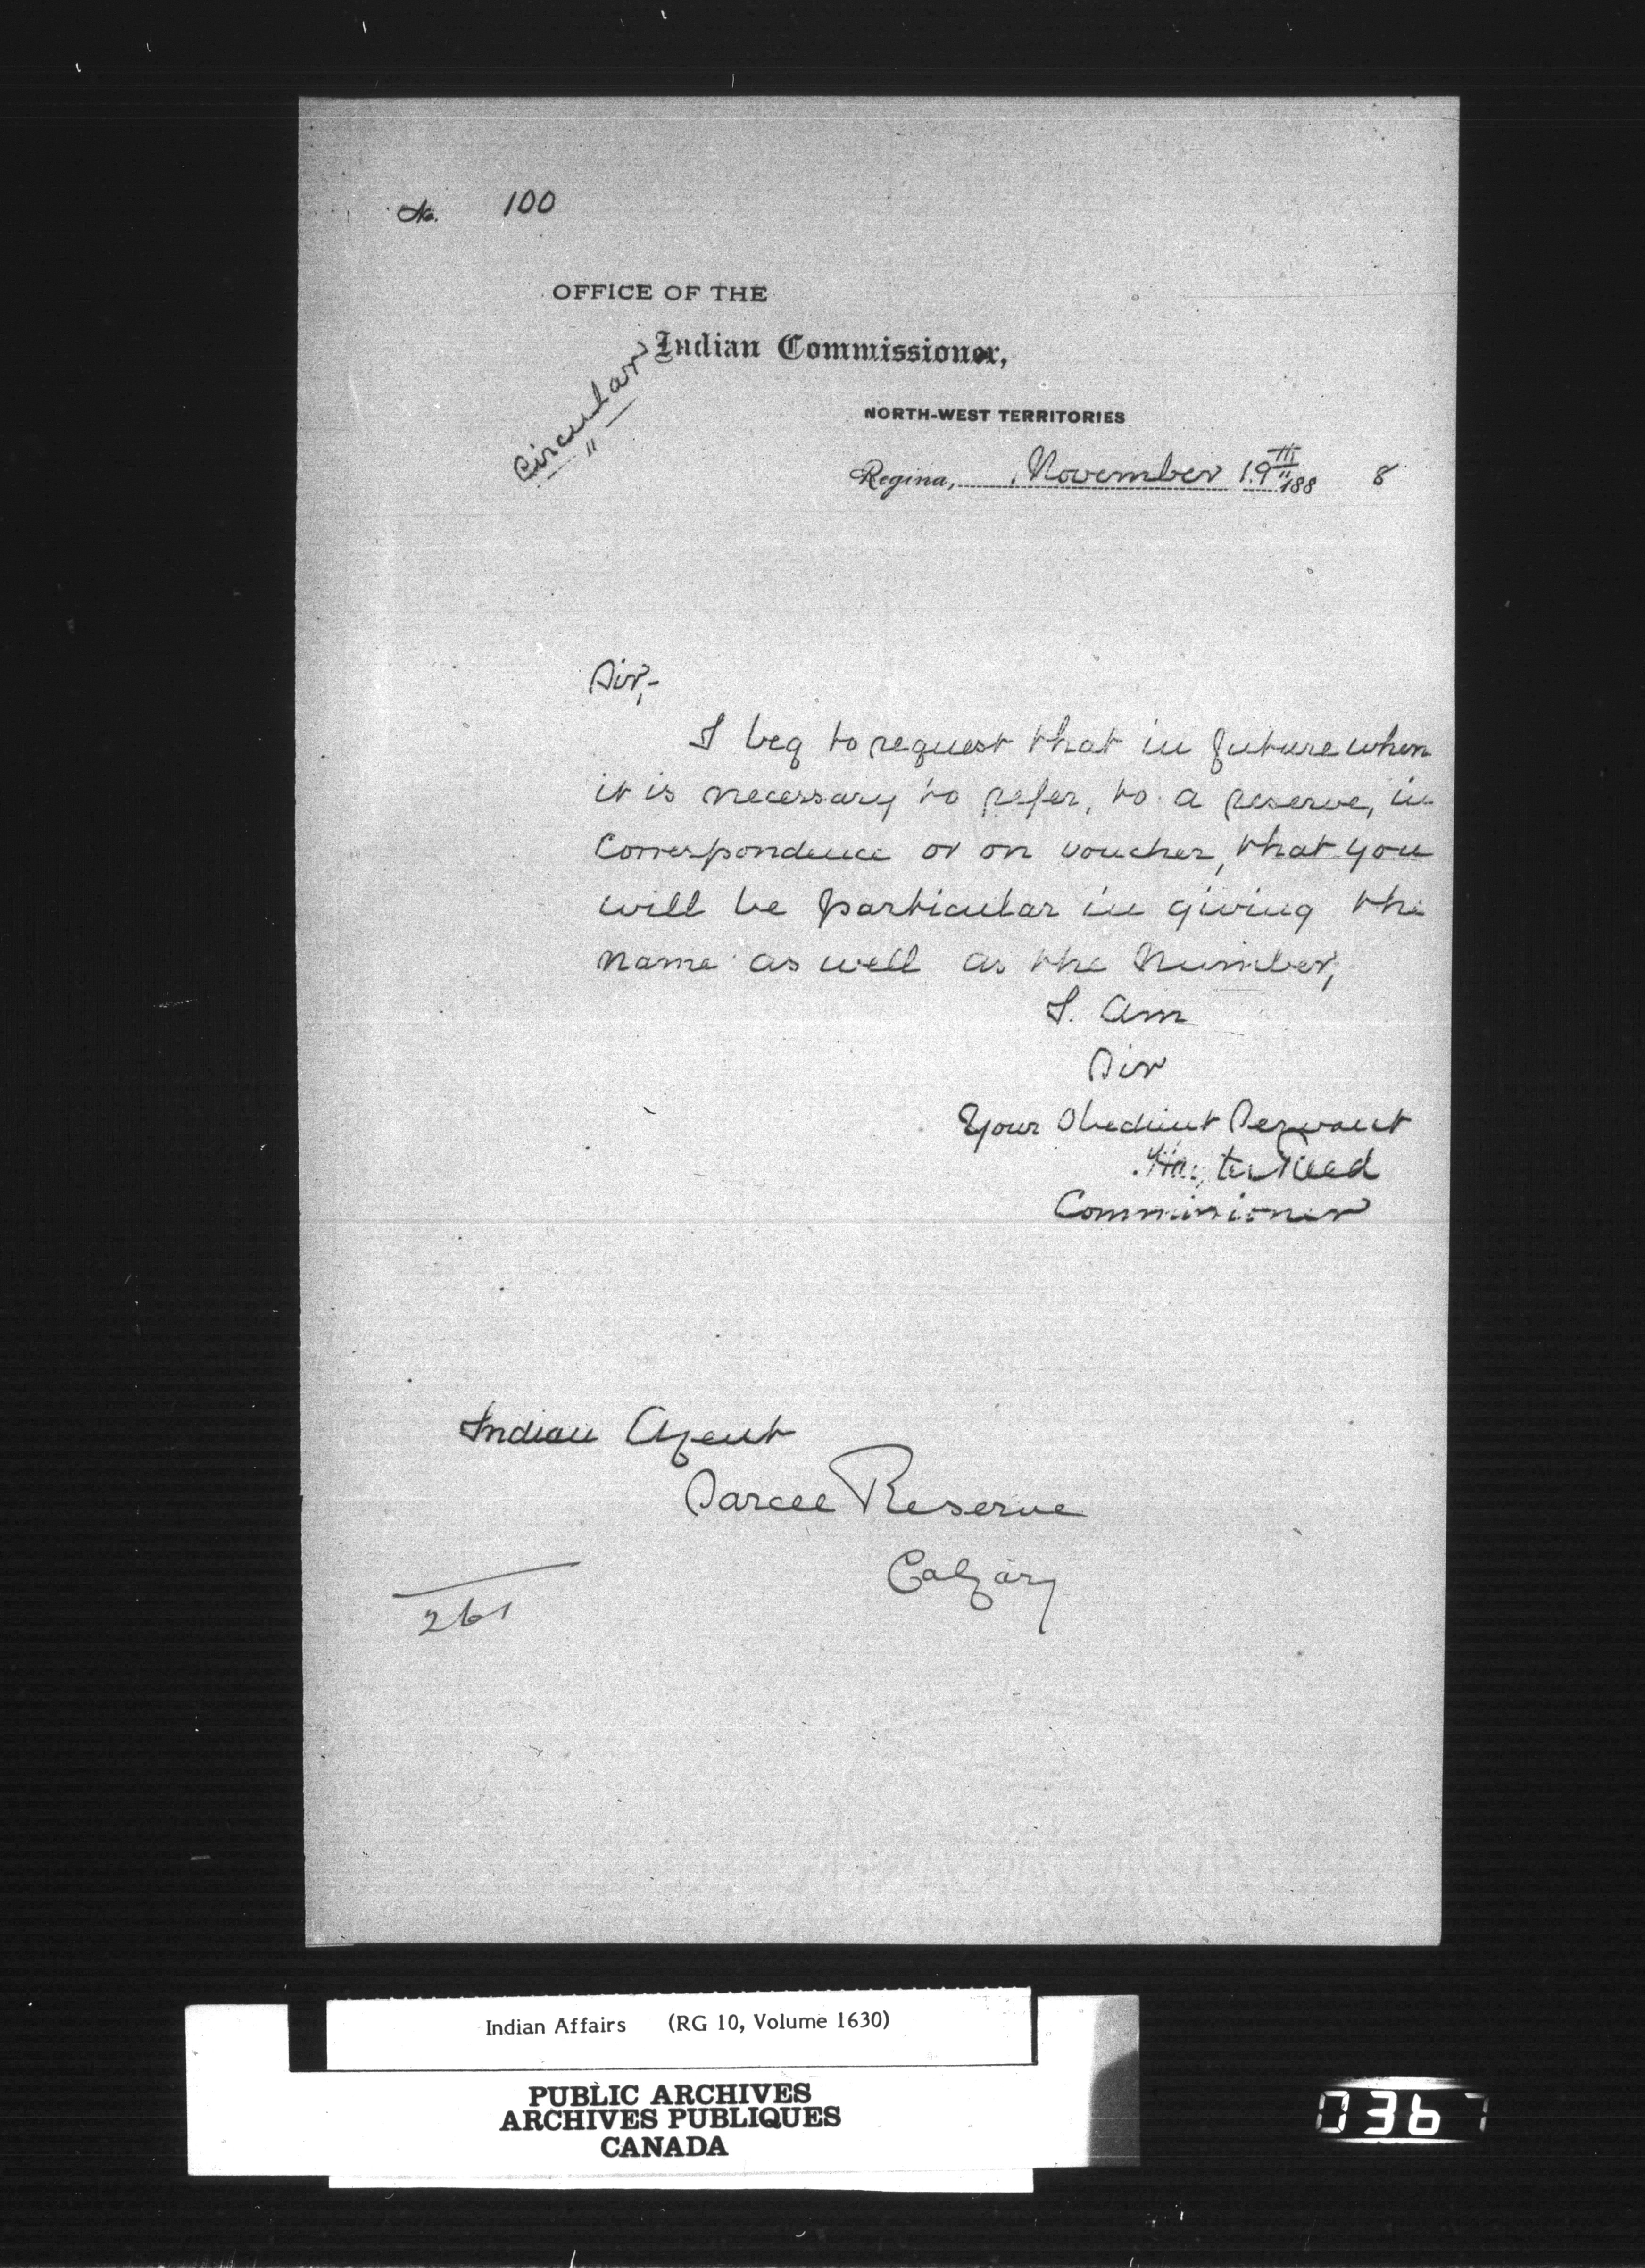 No. 100
OFFICE OF THE
Indian Commissioner,
Circular
NORTH-WEST TERRITORIES
Regina, November 19th 1888
Sir,-
I beg to request that in future when
it is necessary to refer, to a reserve, in
Correspondence or on voucher, that you
will be particular in giving the
name as well as the Number,
I. Am
Sir
Your Obedient Servant
Hayter Reed
Commissioner
Indian Agent
Sarcee Reserve
Calgary
261
Indian Affairs (RG 10, Volume 1630)
PUBLIC ARCHIVES
ARCHIVES PUBLIQUES
CANADA
0367